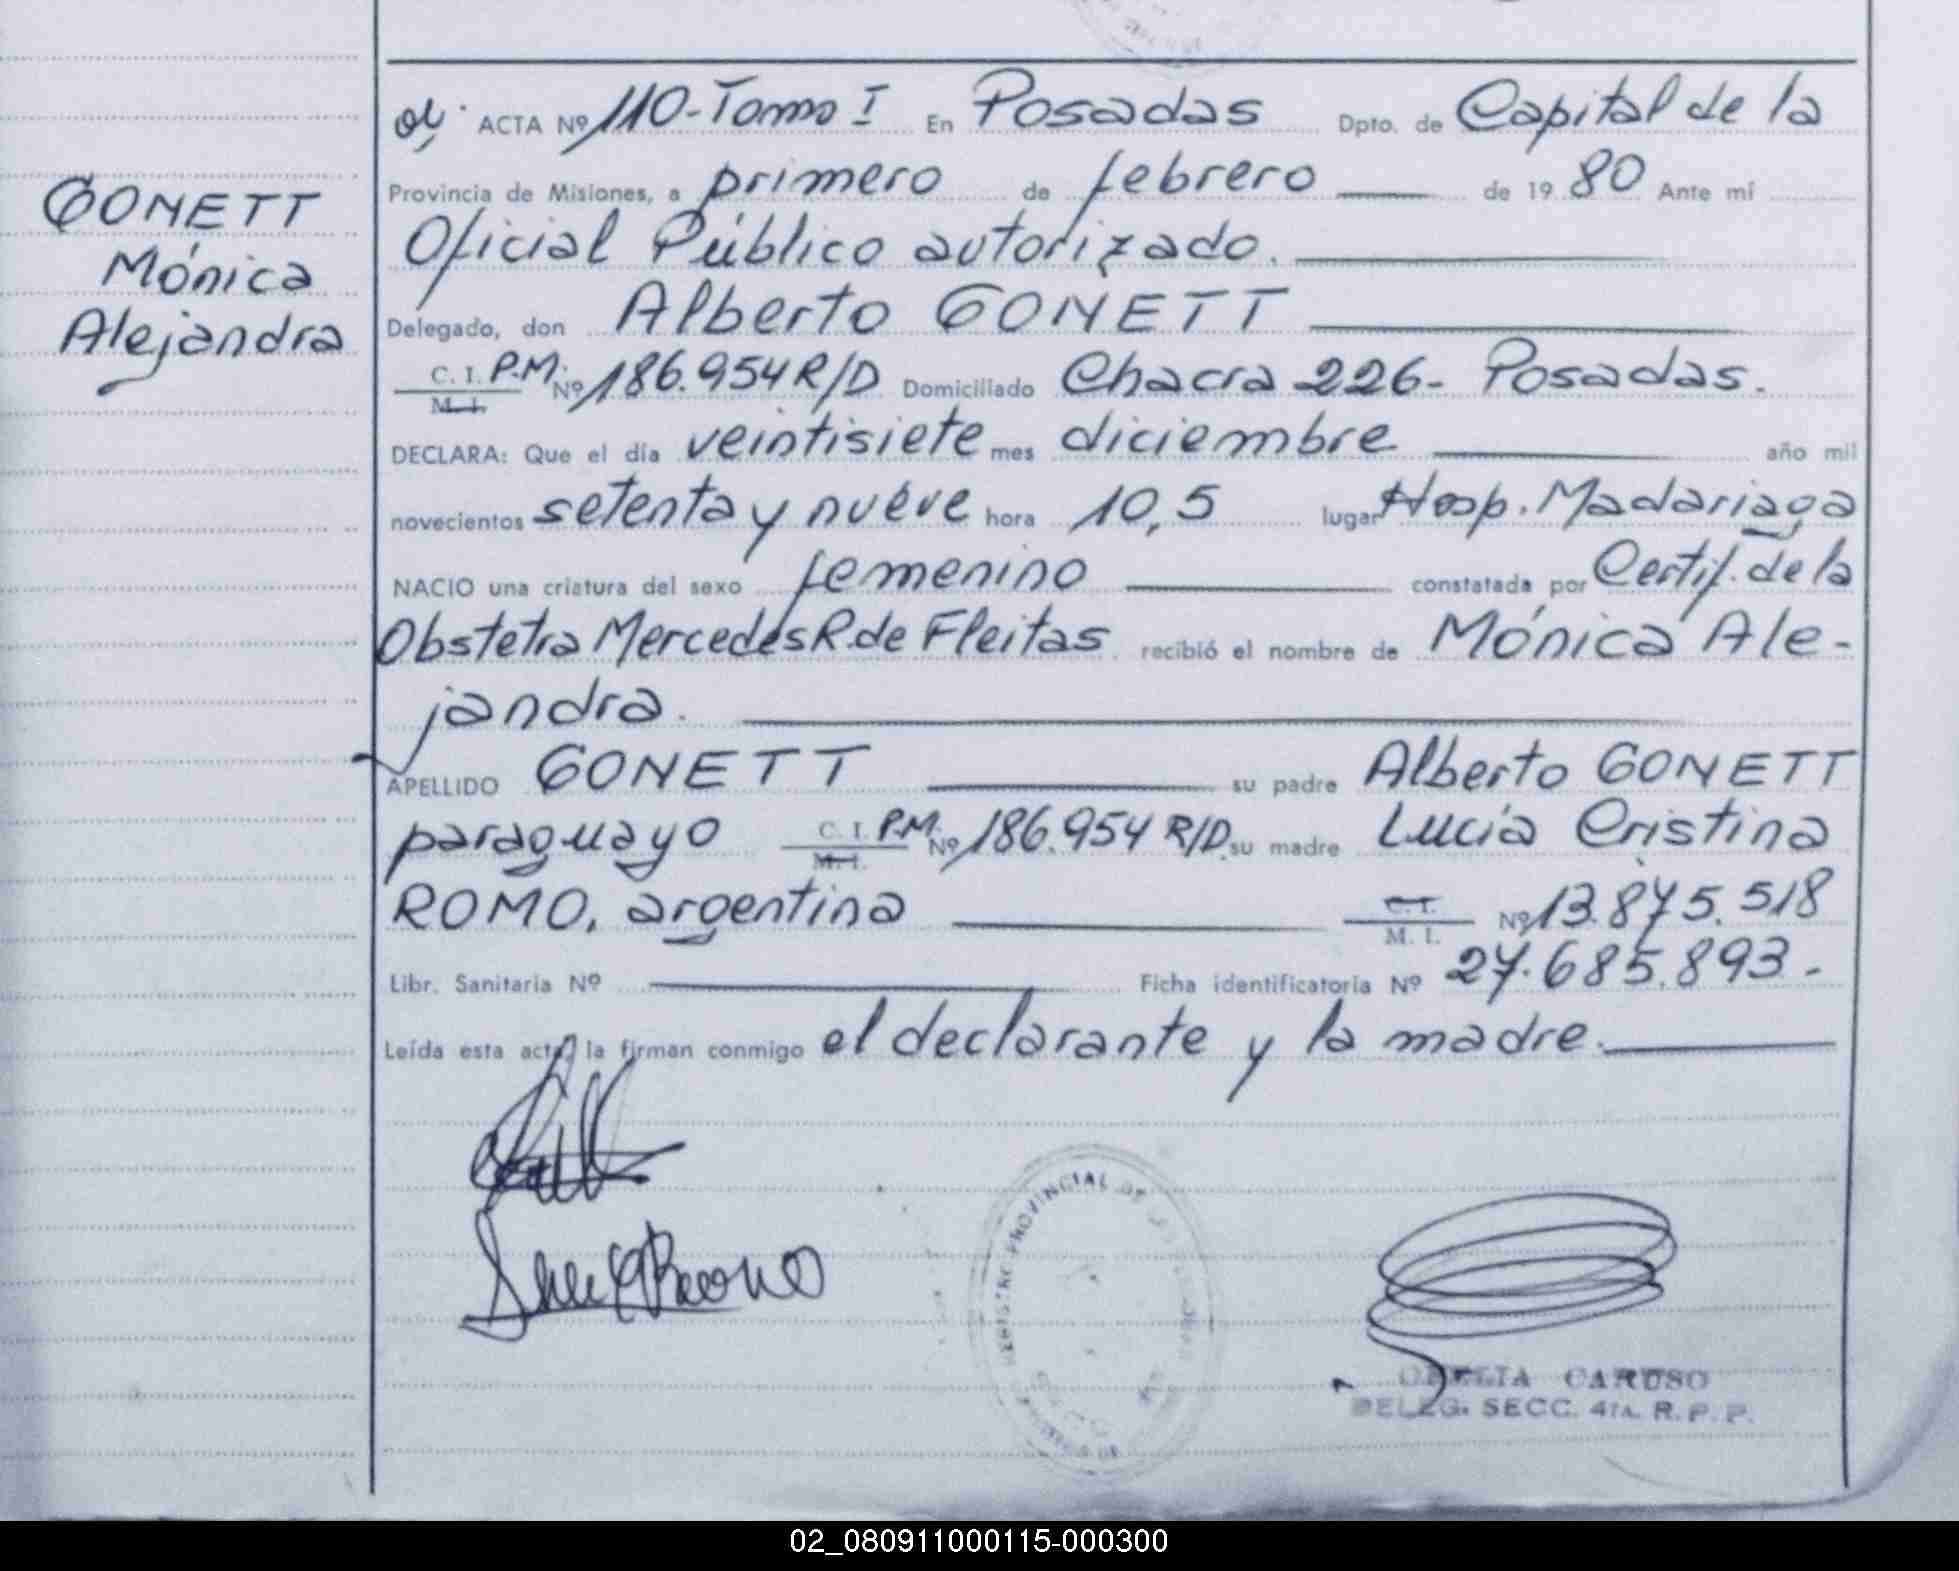 GONETT
Mónica
Alejandra
ACTA Nº 110-Tomo I En Posadas Dpto. de Capital de la
Provincia de Misiones, a primero de febrero de 19 80 Ante mí
Oficial Público autorizado.
Delegado, don Alberto GONETT
C. I. P.M. Nº 186.954 R/D Domiciliado Chacra 226- Posadas.
M. I.
DECLARA: Que el día veintisiete mes diciembre año mil
novecientos setenta y nueve hora 10,5 lugar Hosp. Madariaga
NACIO una criatura del sexo femenino constatada por Certif. de la
Obstetra Mercedes R. de Fleitas recibió el nombre de Mónica Ale-
jandra.
APELLIDO GONETT su padre Alberto GONETT
paraguayo C. I. P.M. Nº 186.954 R/D su madre Lucía Cristina
M. I.
ROMO, argentina C. I. Nº 13.875.518
M. I.
Libr. Sanitaria Nº Ficha identificatoria Nº 27.685.893-
Leída esta acta, la firman conmigo el declarante y la madre.
REGISTRO PROVINCIAL DE
OFELIA CARUSO
DELEG. SECC. 4TA. R. P. P.
02_080911000115-000300